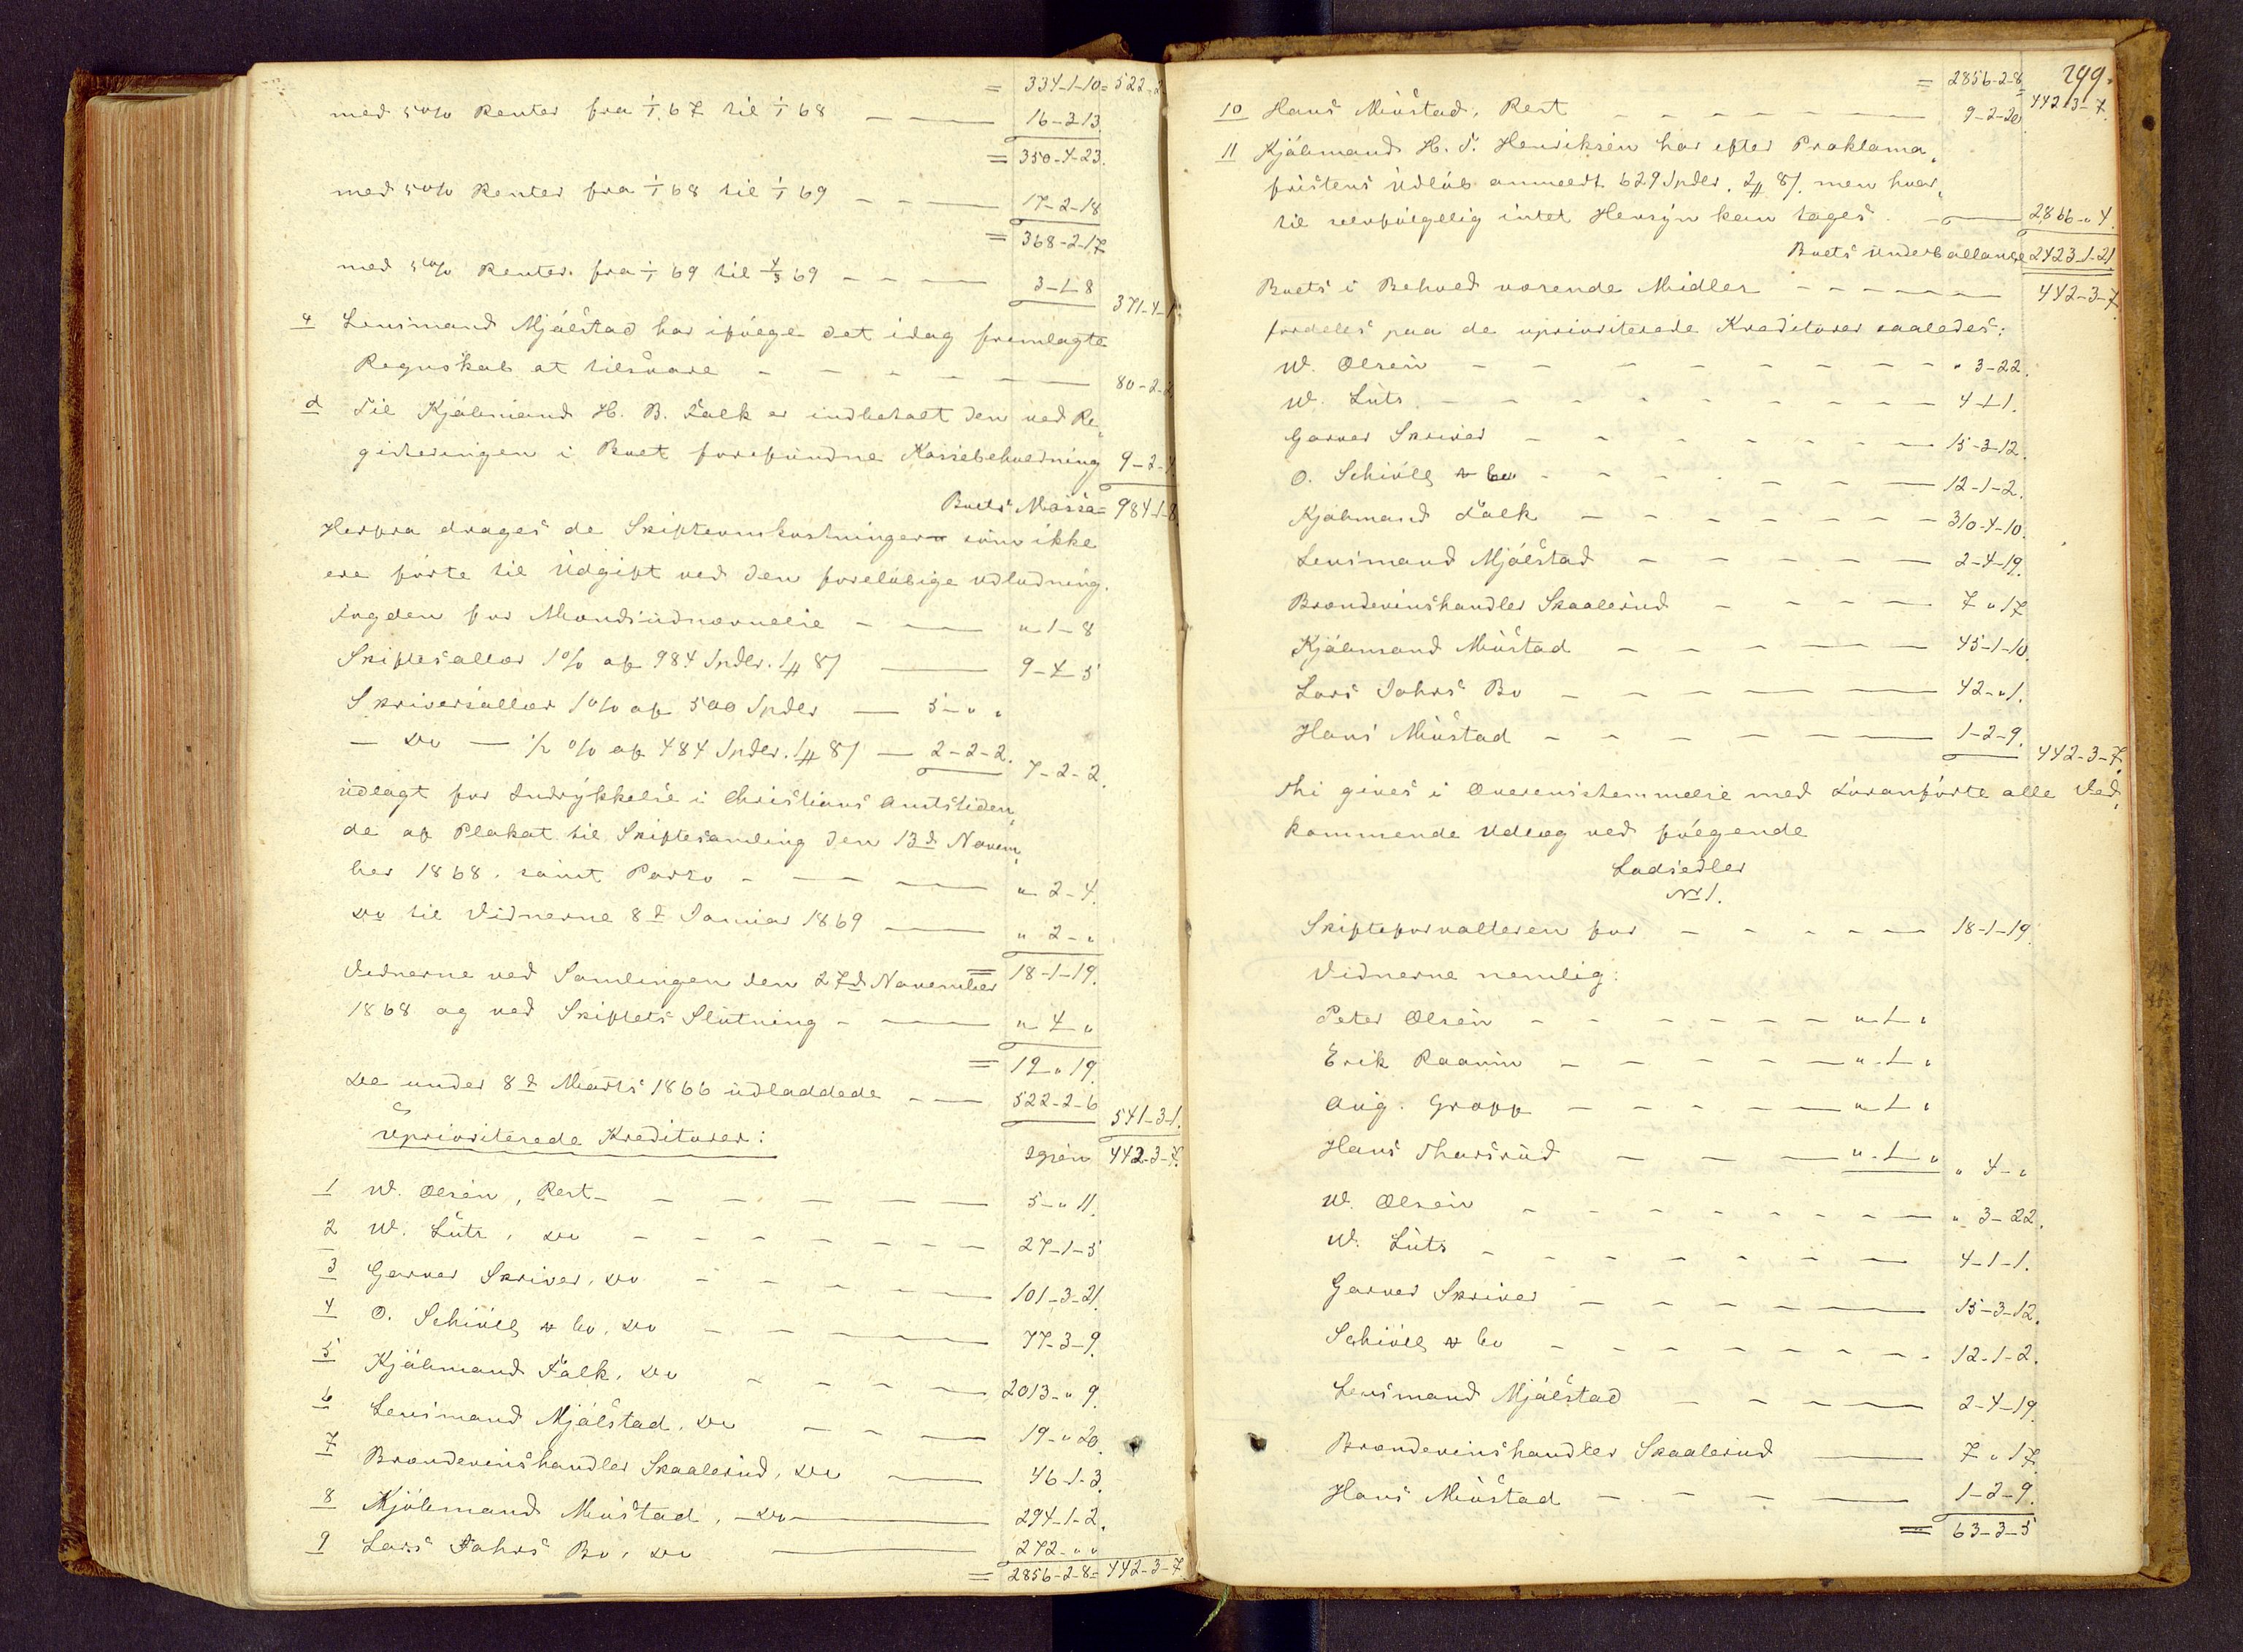 = 334-1-10 = 522-2
med 5 o/o Renter fra 1/1 67 til 1/1 68 — 16-2-13.
= 350-4-23.
med 5 o/o Renter fra 1/1 68 til 1/1 69 — 17-2-18
= 368-2-17
med 5 o/o Renter fra 1/1 69 til 4/3 69 — 3-1-8 371-4-1
Lensmand Mjølstad har ifølge det idag fremlagte
Regnskab at tilsvare — 80-2-2
d Til Kjøbmand H. B. Falk er indbetalt den ved Re„
gisteringen i Boet forefundne Kassebeholdning 9-2-
Boets Massa = 984-1-8
Herfra drages de Skifteomkostninger som ikke
ere førte til Udgift ved den foreløbige Udlodning.
Fogden for Mandsudnævnelse — „-1-8
Skiftesallær 1 o/o af 984 Spdlr. 1 # 8 / — 9-4-5
Skriversallær 1 o/o af 500 Spdlr — 5-„ „
— do — 1/2 o/o af 484 Spdlr. 1 # 8 / — 2-2-2. 7-2-2.
Udlagt for Indrykkelse i Christians Amtstiden„
de af Plakat til Skiftesamling den 13d Novem„
ber 1868. samt Porto — „ 2-4.
do til Vidnerne 8d Januar 1869 — „ 2-„
= 18-1-19.
Vidnerne ved Samlingen den 27d November
1868 og ved Skiftets Slutning — „ 4 „
= 19 „ 19.
De under 8d Marts 1866 udloddede — 522-2-6 541-3-1.
igjen 442-3-7.
Uprioriterede Kreditorer:
1 W. Olsen, Rest — 5-„ 11.
2 W. Lütz, do — 27-1-5
3 Garver Skriver, do — 101-3-21.
4 O. Schiøll & Co, do — 77-3-9.
5 Kjøbmand Falk, do — 2013-„ 9.
6 Lensmand Mjølstad, do — 19-„ 20.
7 Brændevinshandler Skaalerud, do — 46-1-3.
8 Kjøbmand Mustad, — do — 294-1-2.
9 Lars Jahrs Bo, do — 272-„ „
= 2856-2-8 = 442-3-7
299.
= 2856-2-8 = 442-3-7.
10 Hans Mustad, Rest — 9-2-20.
11 Kjøbmand H. S. Henriksen har efter Proklama„
fristens Udløb anmeldt 629 Spdlr. 2 # 8 /. men hver„
til selvfølgelig intet Hensyn kan tages. — 2866-„ 4.
Boets Underballance 2423-1-21.
Boets i Behold værende Midler — 442-3-7.
fordeles paa de uprioriterede Kreditorer saaledes:
W. Olsen — „ 3-22.
W. Lütz — 4-1-1.
Garver Skriver — 15-3-12.
O. Schiøll & Co — 12-1-2.
Kjøbmand Falk — 310-4-10.
Lensmand Mjølstad — 2-4-19.
Brændevinshandler Skaalerud — 7 „ 17
Kjøbmand Mustad — 45-1-10.
Lars Jahrs Bo — 42-„ 1.
Hans Mustad — 1-2-9. 442-3-7.
Thi gives i Overensstemmelse med Foranførte alle Ved„
kommende Udlæg ved følgende
Lodsedler
No 1.
Skifteforvalteren for — 18-1-19.
Vidnerne nemlig:
Peter Olsen — „-1-„
Erik — „-1-„
Aug. Gropp — „-1-„
Hans Thorsrud — „-1-„ „ 4-„
W. Olsen — „ 3-22.
W. Lütz — 4-1-1.
Garver Skriver — 15-3-12.
Schiøll & Co — 12-1-2.
Lensmand Mjølstad — 2-4-19.
Brændevinshandler Skaalerud — 7 „ 17
Hans Mustad — 1-2-9.
= 63-3-5